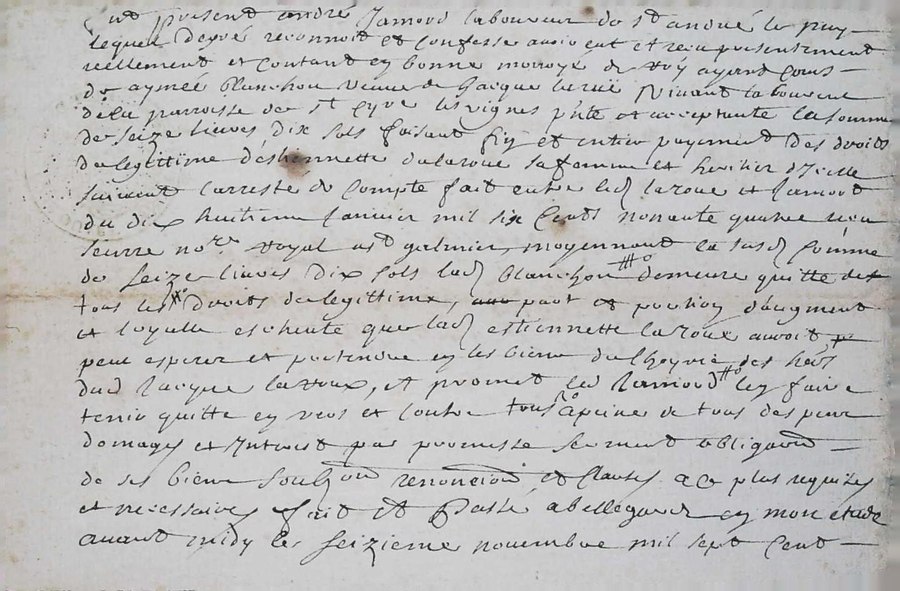 fut present andré Jamord laboureur de st andré le puy
lequel degré reconnoit et confesse avoir eut et receu presentement
reellement et contant en bonne monoye de roy ayant cours
de aymée blanchon veuve de Jacque laroue vivant laboureur
de la parroisse de st Cyre les vignes p'nte et acceptante la somme
de seize livres dix sols faisant fin et entier payement des droits
de legitime d'estiennette de laroue sa femme et heritier d'icelle
suivant l'arresté de compte fait entre led laroue et Jamord
du dix huitieme Janvier mil six Cents nonante quatre receu
no.re royal a st galmier, moyennant la susd somme
de seize livres dix sols lad blanchon demeure quitte de
tous les droits de legittime, part et portion d'augment
et loyalle escheute que lad estiennette laroue avoit
peut esperer et pretendre en les biens de l'hoyrie des hers
dud Jacque laroux, et promet led Jamord len faire
tenir quitte en vers et contre tous a peine de tous despens
domages et Interest par promesse serment obligaon
de ses biens renonciaon et Clauses a ce plus requises
et necessaires fait et Passé a bellegarde en mon etude
avant midy le seizieme novembre mil sept Cent